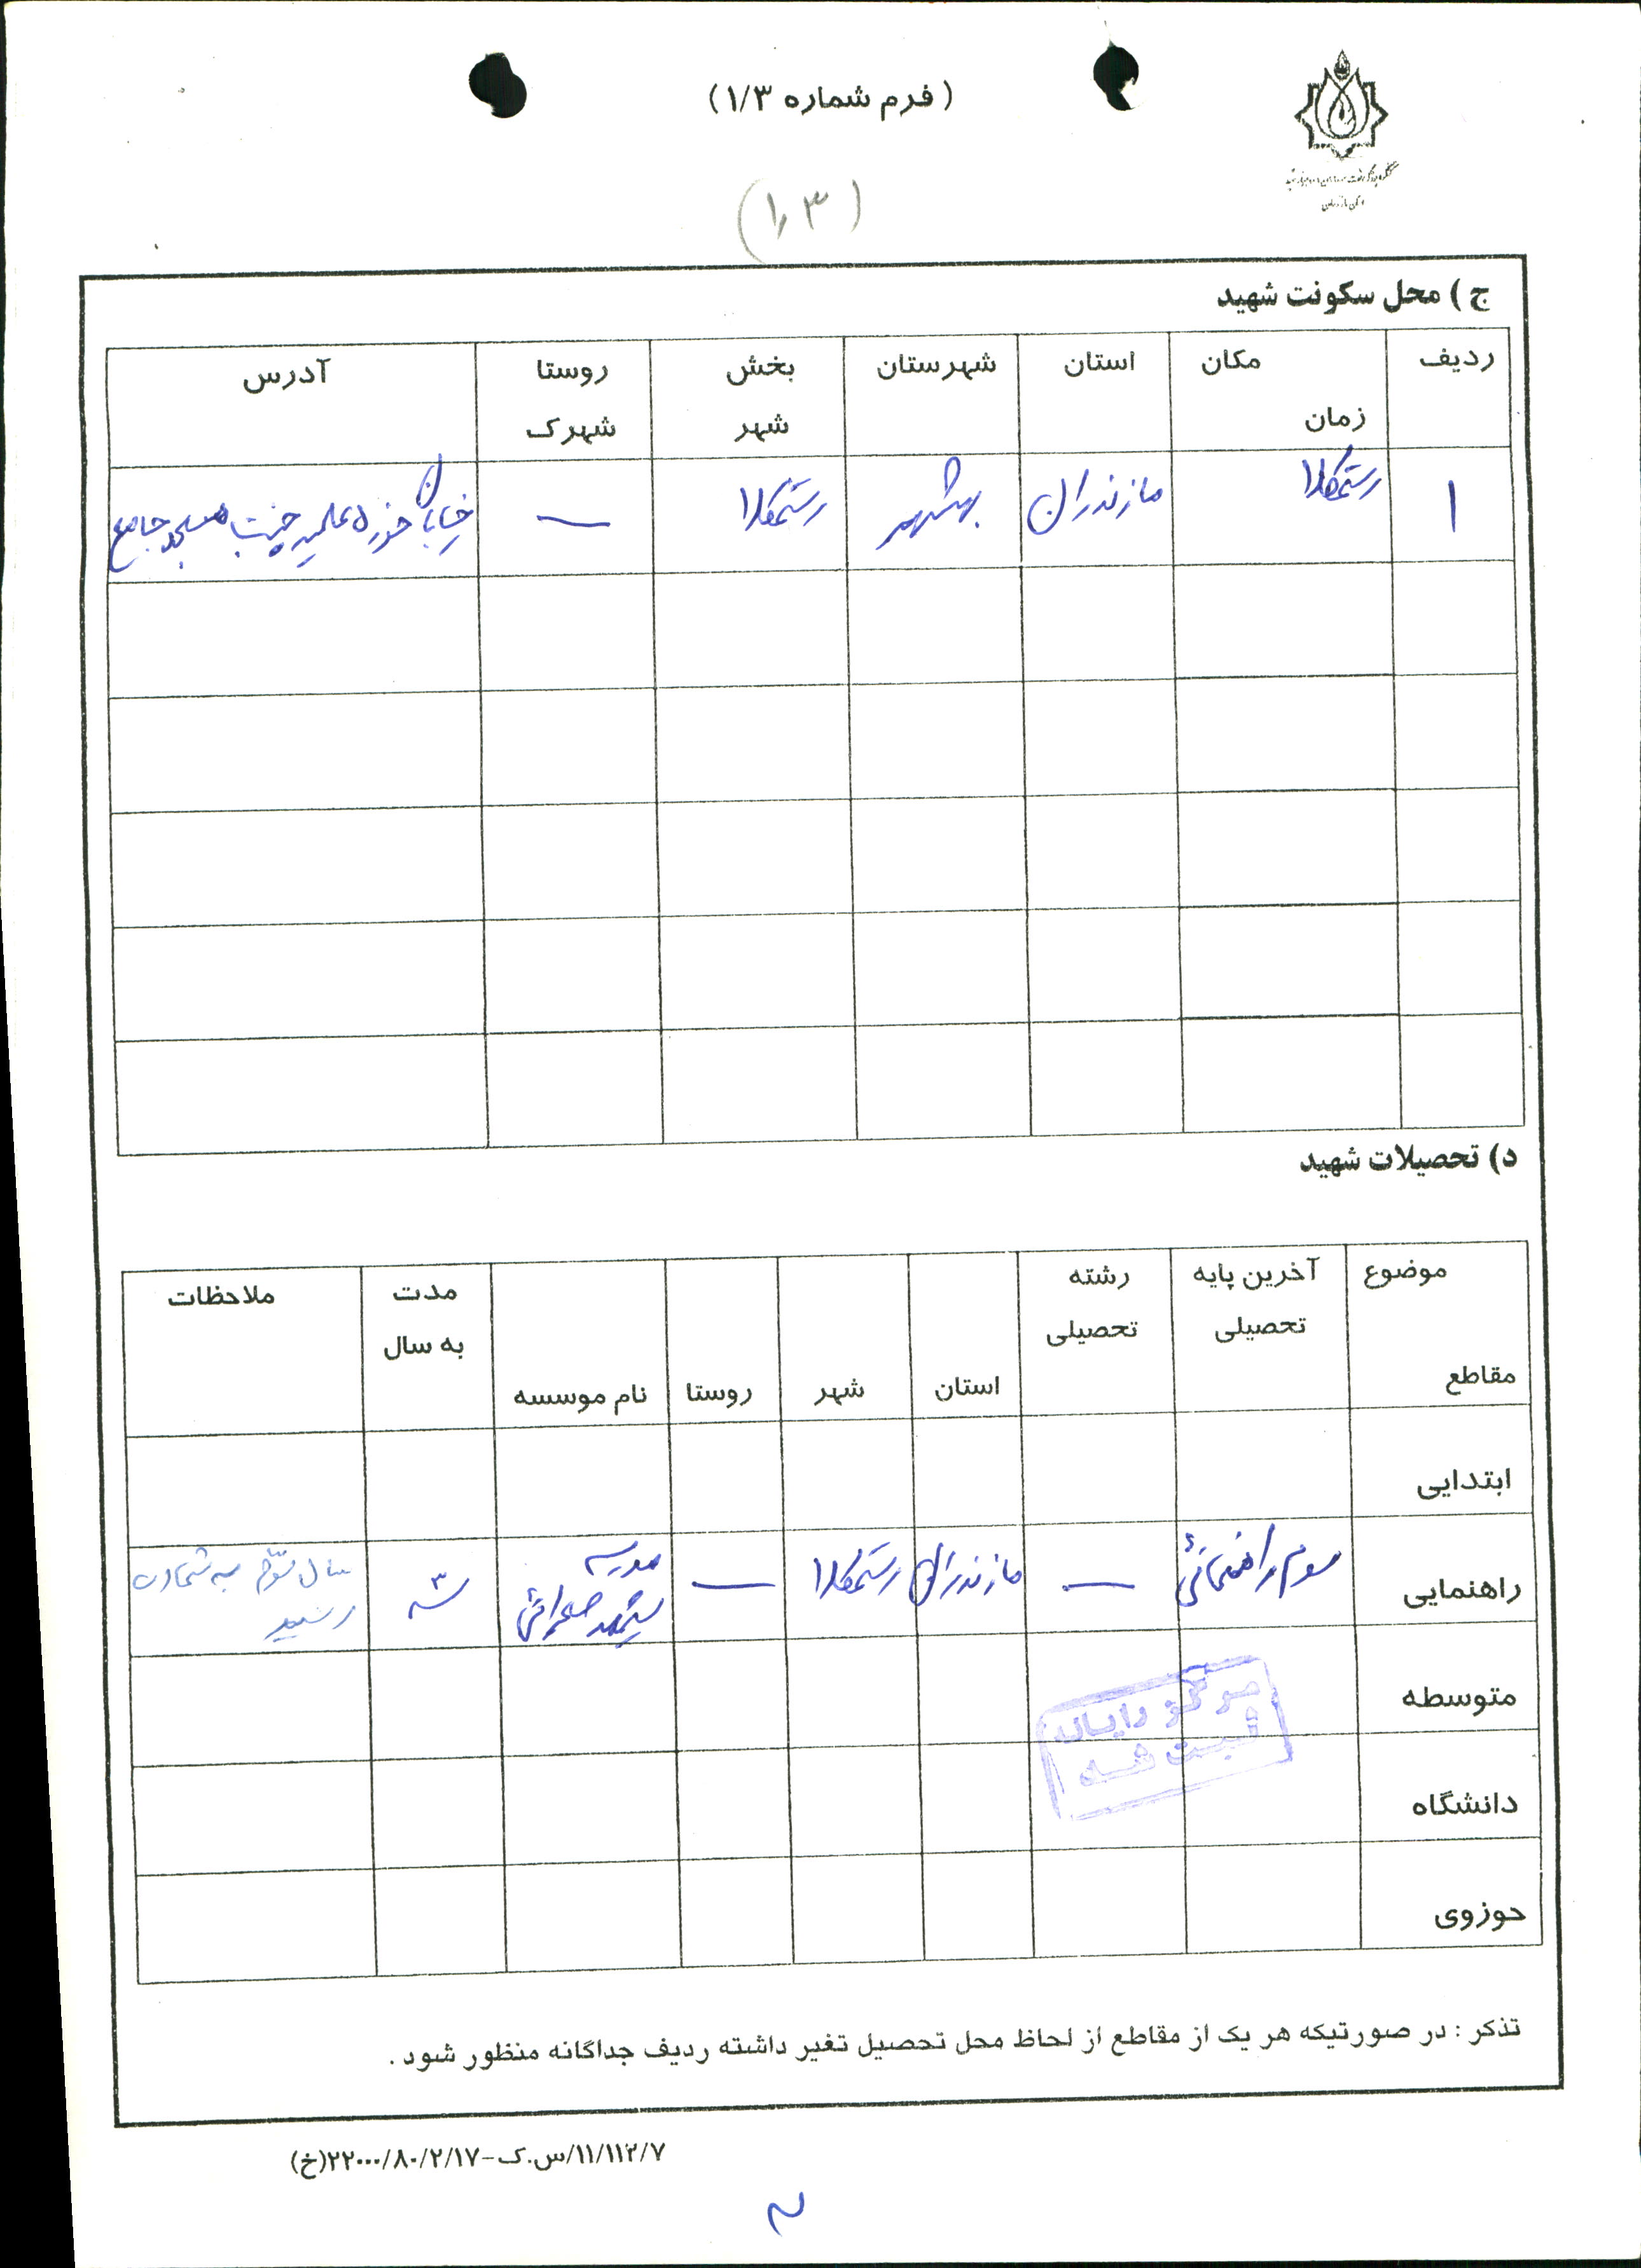 ( فرم شماره ۱/۳)
(۱٫۳)
ج ) محل سکونت شهید
ردیف مکان زمان استان شهرستان بخش شهر روستا شهرک آدرس
۱ رستمکلا مازندران بهشهر رستمکلا — خیابان حوزه علمیه جنب مسجد جامع
د) تحصیلات شهید
موضوع مقاطع آخرین پایه تحصیلی رشته تحصیلی استان شهر روستا نام موسسه مدت به سال ملاحظات
ابتدایی
راهنمایی سوم راهنمائی — مازندران رستمکلا — مدرسه شهید ۳ سال سوم به شهادت رسید
متوسطه
دانشگاه
حوزوی
مرکز رایانه
ثبت شد
تذکر : در صورتیکه هر یک از مقاطع از لحاظ محل تحصیل تغیر داشته ردیف جداگانه منظور شود .
۱۱/۱۱۲/۷/س.ک-۲۲۰۰۰/۸۰/۲/۱۷(خ)